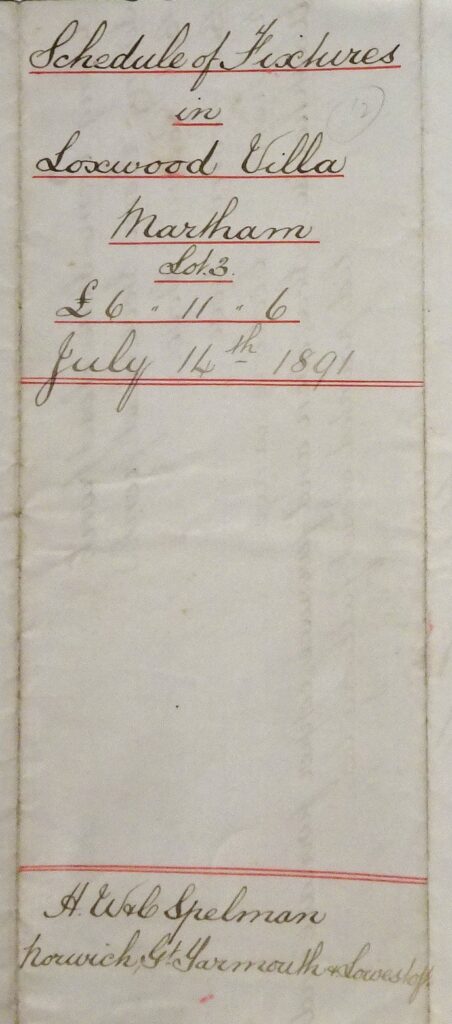 Schedule of Fixtures
in
12
Loxwood Villa
Martham
Lot. 3.
£ 6 " 11 " 6
July 14th 1891
H. W & C Spelman
Norwich, Gt. Yarmouth & Lowestoft